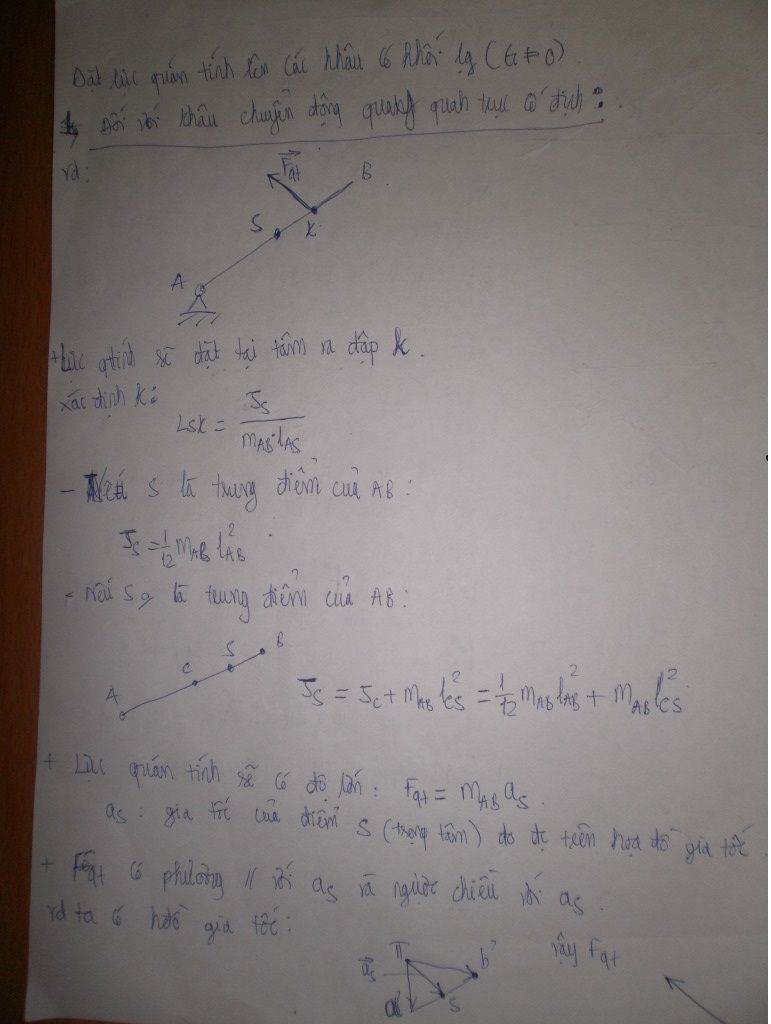 Đặt lực quán tính lên các khâu có khối lg (G≠0).
Đối với khâu chuyển động quay quanh trục cố định:
vd:
F⃗qt
B
S
K
A
+ Lực qtính sẽ đặt tại tâm va đập k.
Xác định k:
LSK = JS / mAB.lAS
- Nếu S là trung điểm của AB:
JS = 1/12 mAB l²AB
- Nếu S là trung điểm của AB:
B
S
C
A
JS = JC + mAB l²CS = 1/12 mAB l²AB + mAB l²CS
+ Lực quán tính sẽ có độ lớn: Fqt = mAB aS.
aS: gia tốc của điểm S (trọng tâm) đo đc trên họa đồ gia tốc
+ Fqt có phương // với aS và ngược chiều với aS.
vd ta có hđồ gia tốc:
vậy Fqt
π
b'
a⃗S
S